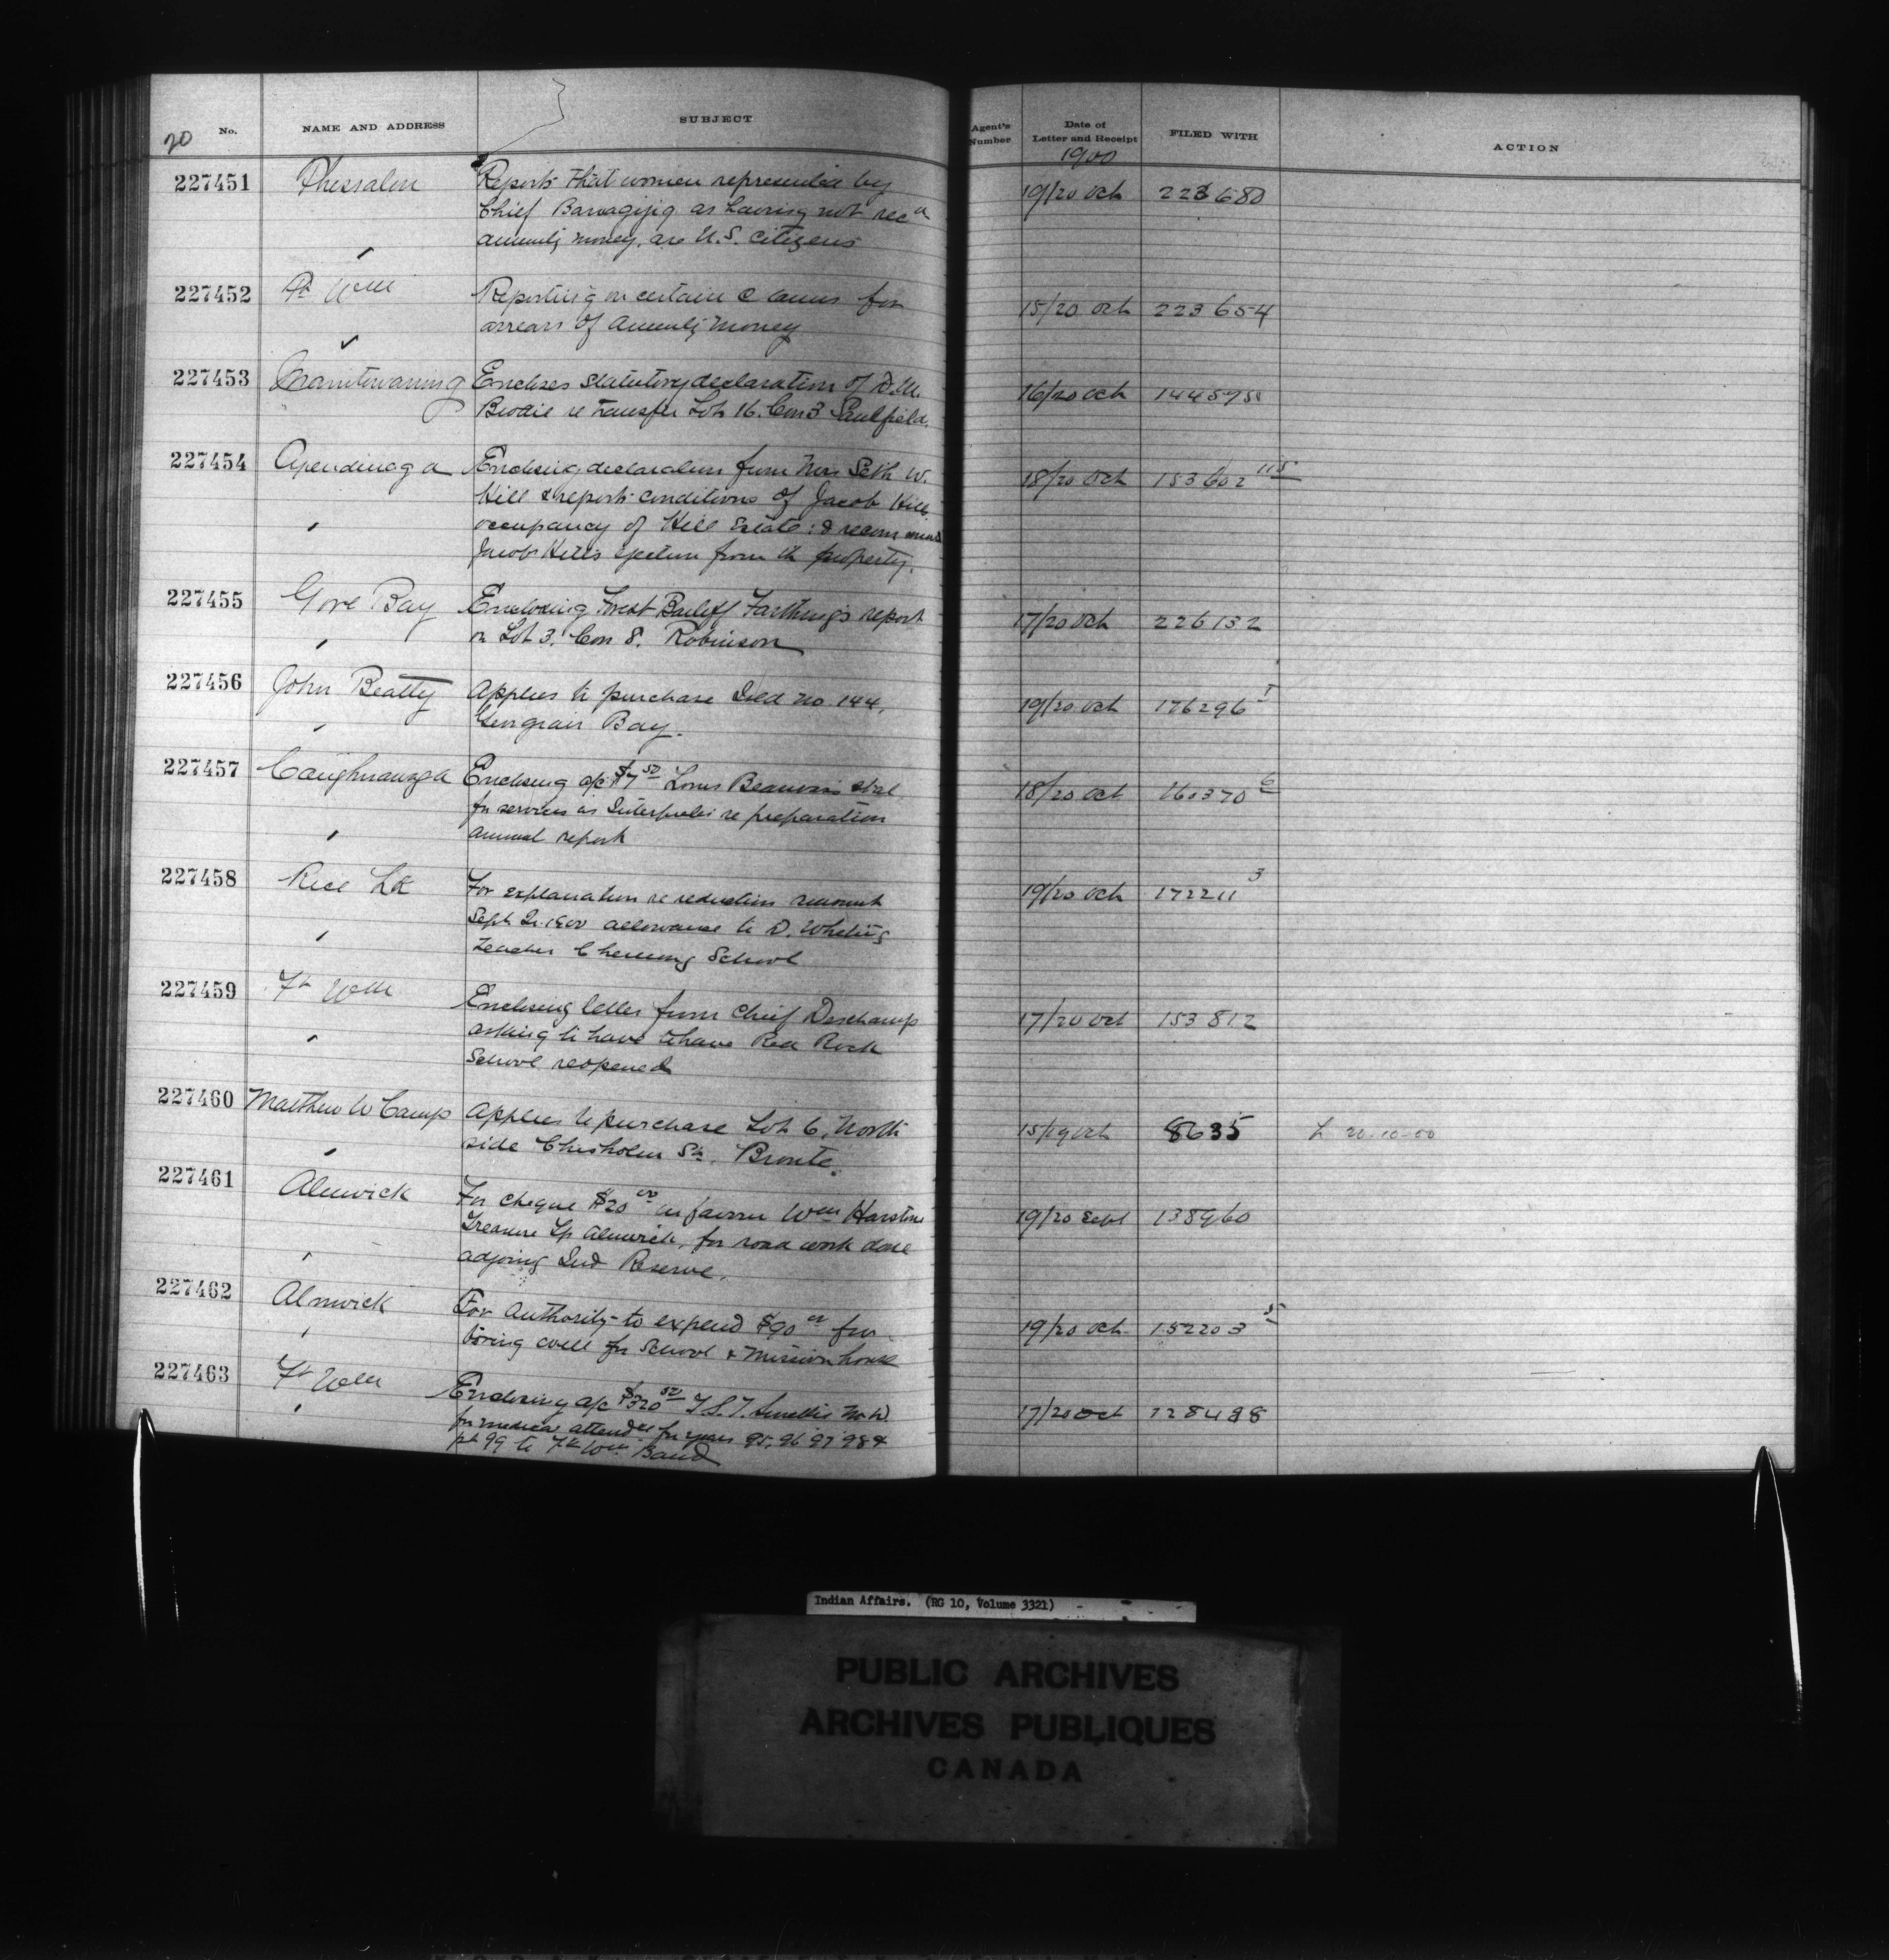 20
No. NAME AND ADDRESS SUBJECT Agent's Number Date of Letter and Receipt FILED WITH ACTION
1900
227451 Thessalon Reports that women represented by 19/20 Oct 223680
Chief as having not recd
annuity money, are U.S. citizens
227452 Ft Wm Reporting on certain claims for 15/20 Oct 223654
arrears of annuity money
227453 Manitowaning Encloses statutory declaration of D.M. 16/20 Oct
Brodie re transfer Lot 16. Con 3 Sandfield.
227454 Tyendinaga Enclosing declaration from Mrs Seth W. 18/20 Oct 153602 115
Hill & reports conditions of Jacob Hills
occupancy of Hill Estate; & recommends
Jacob Hills ejection from the property.
227455 Gore Bay Enclosing Forest Bailiff Farthing's report 17/20 Oct 226132
on Lot 3. Con 8. Robinson
227456 John Beatty Applies to purchase Isld no 144, 19/20 Oct 176296 1
Georgian Bay.
227457 Caughnawaga Enclosing a/c $7 50 Louis Beauvais 18/20 Oct 160370 6
for services as Interpreter re preparation
annual report
227458 Rice Lk For explanation re reduction amount 19/20 Oct 172211 3
Sept Qr. 1900 allowance to D. Whetung
teacher Chemong School
227459 Ft Wm Enclosing letter from Chief Deschamp 17/20 Oct 153812
asking to have Red Rock
School reopened
227460 Matthew W Camp Applies to purchase Lot 6, North 15/19 Oct 8635 L 20-10-00
side Chisholm St. Bronte.
227461 Alnwick For cheque $20 00 in favour Wm Harstone 19/20 Sept 138960
Treasurer Tp Alnwick, for road work done
adjoing Ind Reserve.
227462 Alnwick For authority to expend $90 00 for 19/20 Oct 152203 5
boring well for School & Mission house
227463 Ft Wm Enclosing a/c $320 50 T.S.T. Smellie M.D. 17/20 Oct 128498
for medical attendce for years 95, 96 97 98 &
pt 99 to Ft Wm Band
Indian Affairs. (RG 10, Volume 3321)
PUBLIC ARCHIVES
ARCHIVES PUBLIQUES
CANADA